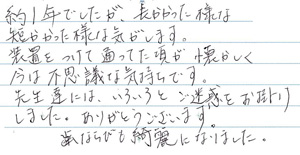 約1年でしたが、長かった様な
短かかった様な気がします。
装置をつけて通ってた頃が懐かしく
今は不思議な気持ちです。
先生達には、いろいろとご迷惑をお掛け
しました。ありがとうございます。
歯ならびも綺麗になりました。